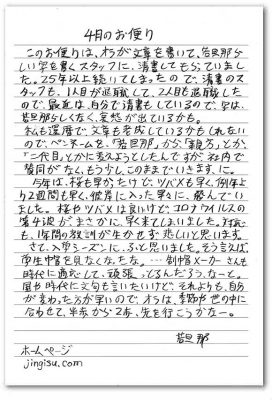 4月のお便り
このお便りは、オラが文章を書いて、若旦那らし
い字を書くスタッフに、清書してもらっていまし
た。25年以上続いてしまったので、清書のス
タッフも、1人目が退職して、2人目も退職した
ので、最近は、自分で清書もしているので、字は、
若旦那らしくなく、哀愁が出ているかも。
私も還暦で、文章も老成しているかもしれない
ので、ペンネームを、「若旦那」から、「親方」とか、
「二代目」とかに変えようとしたんですが、社内で
賛同がなく、もう少し、このままでいきます、に。
今年は、桜も早かったけど、ツバメも早く、例年よ
り2週間も早く、彼岸に入った早々に、飛んでい
ました。桜やツバメは良いけど、コロナウイルスの
第4波がまさかに、早く来てしまいました。対応
も、1年間の教訓が生かせず悲しいと思います。
さて、入学シーズンに、ふと思いました。そう言えば、
学生帽を見なくなったな。…制帽メーカーさんも
時代に適応して、頑張ってるんだろうなーと。
国や時代に文句も言いたいけど、それよりも、自分
が変わった方が早いので、オラは、季節や世の中に
合わせて、半歩から2歩、先を行こうかなー。
若旦那
ホームページ
jingisu.com